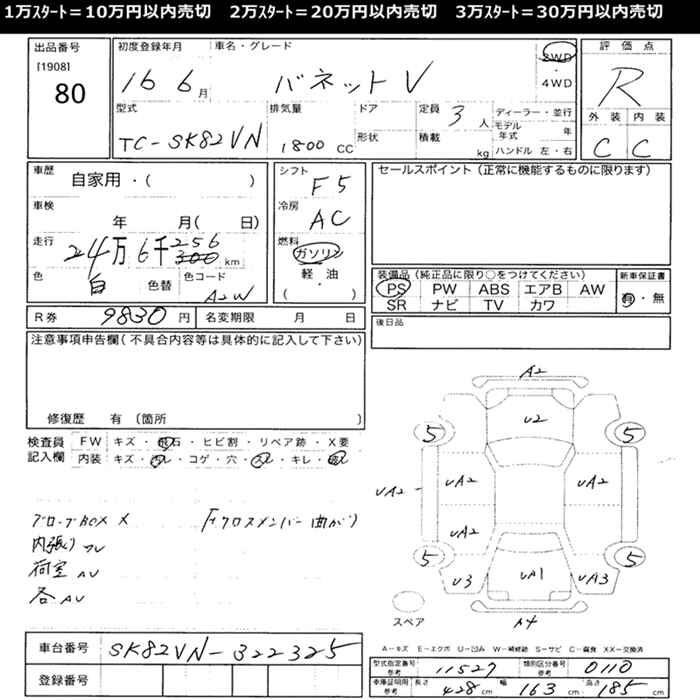 1万スタート=10万円以内売切 2万スタート=20万円以内売切 3万スタート=30万円以内売切
出品番号 初度登録年月 車名・グレード 評価点
[1908] 80 16 6月 バネットV 2WD・4WD R
型式 排気量 ドア 定員 3人 ディーラー・並行 外装 内装
TC-SK82VN 1800 CC 形状 積載 kg モデル年式 年 C C
ハンドル 左・右
車歴 自家用・( ) シフト F5 セールスポイント(正常に機能するものに限ります)
車検 年 月( 日) 冷房 AC
走行 24万6千256 km 燃料 ガソリン
色 白 色替 色コード A2W 軽・油 ( )
装備品(純正品に限り○をつけてください) 新車保証書
PS PW ABS エアB AW 有・無
SR ナビ TV カワ
R券 9830円 名変期限 月 日 後日品
注意事項申告欄(不具合内容等は具体的に記入して下さい)
修復歴 有(箇所 )
検査員記入欄 FW キズ・飛石・ヒビ割・リペア跡・X要
内装 キズ・ヨゴレ・コゲ・穴・スレ・キレ・
グローブBOX X (下クロスメンバー曲がり)
内張り スレ
荷室 AU
各 AU
A2
U2
5 5
UA2 UA2 UA2
UA2
5 5
U3 UA1 UA3
スペア A4
A-キズ E-エクボ U-凹み W-補修跡 S-サビ C-腐食 XX-交換済
車台番号 SK82VN-322325
登録番号
型式指定番号 参考 11527 類別区分番号 参考 0110
車庫証明用 参考 長さ 428cm 幅 163cm 高さ 185cm